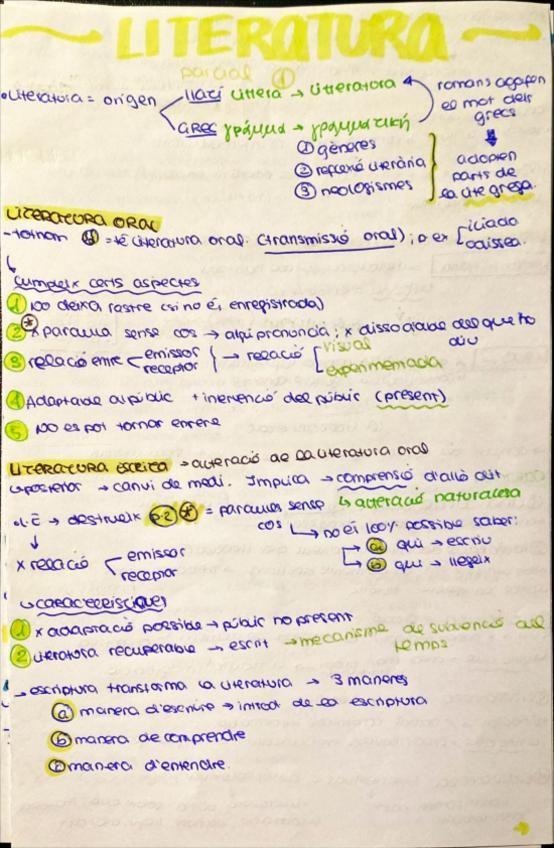 LITERATURA
parcial ①
• Literatura = origen
llatí littera → litteratura
GREC γράμμα → γραμματική
romans agafen el mot dels grecs
① gèneres
② reflexió literària
③ neologismes
adopten parts de la lite grega.
LITERATURA ORAL
té literatura oral. (transmissió oral); p ex [iliada
odissea.
Cumpleix certs aspectes
① No deixa rastre (si no és enregistrada)
② * paraula sense cos → algú pronuncia; x dissociable del que ho diu
③ relació entre emissor
receptor → relació [visual
experimentada
④ Adaptable al públic + intervenció del públic (present)
⑤ No es pot tornar enrere
LITERATURA ESCRITA → alteració de la literatura oral
↳ posterior → canvi de medi. Implica → comprensió d'allò dit
↳ alteració naturalesa
L.E → destrueix p.2 * = paraula sense cos
↳ no és 100% possible saber:
ⓐ qui → escriu
ⓑ qui → llegeix
x relació emissor
receptor
↳ característiques
① x adaptació possible → públic no present
② literatura recuperable → escrit → mecanisme de del temps
→ escriptura transforma la literatura → 3 maneres
ⓐ manera d'escriure → introd de la escriptura
ⓑ manera de comprendre
ⓒ manera d'entendre.